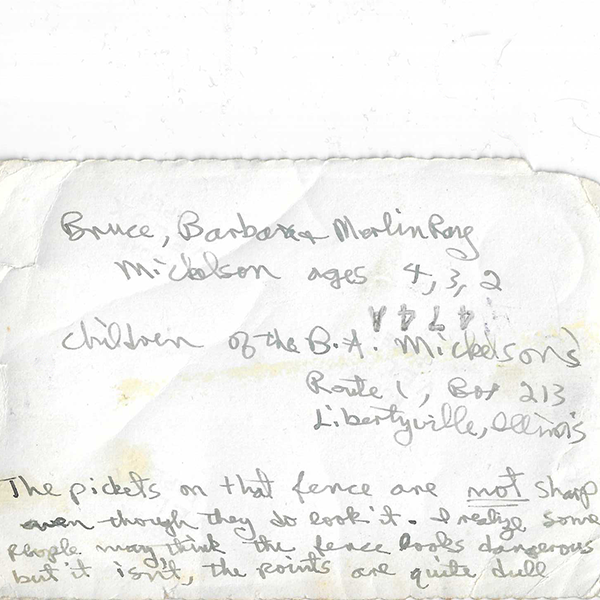 Bruce, Barbara & Merlin Roy
Mickelson ages 4, 3, 2
children of the B.A. Mickelsons
Route 1, Box 213
Libertyville, Illinois
The pickets on that fence are not sharp
even though they do look it. I realize some
people may think the fence looks dangerous
but it isn't, the points are quite dull